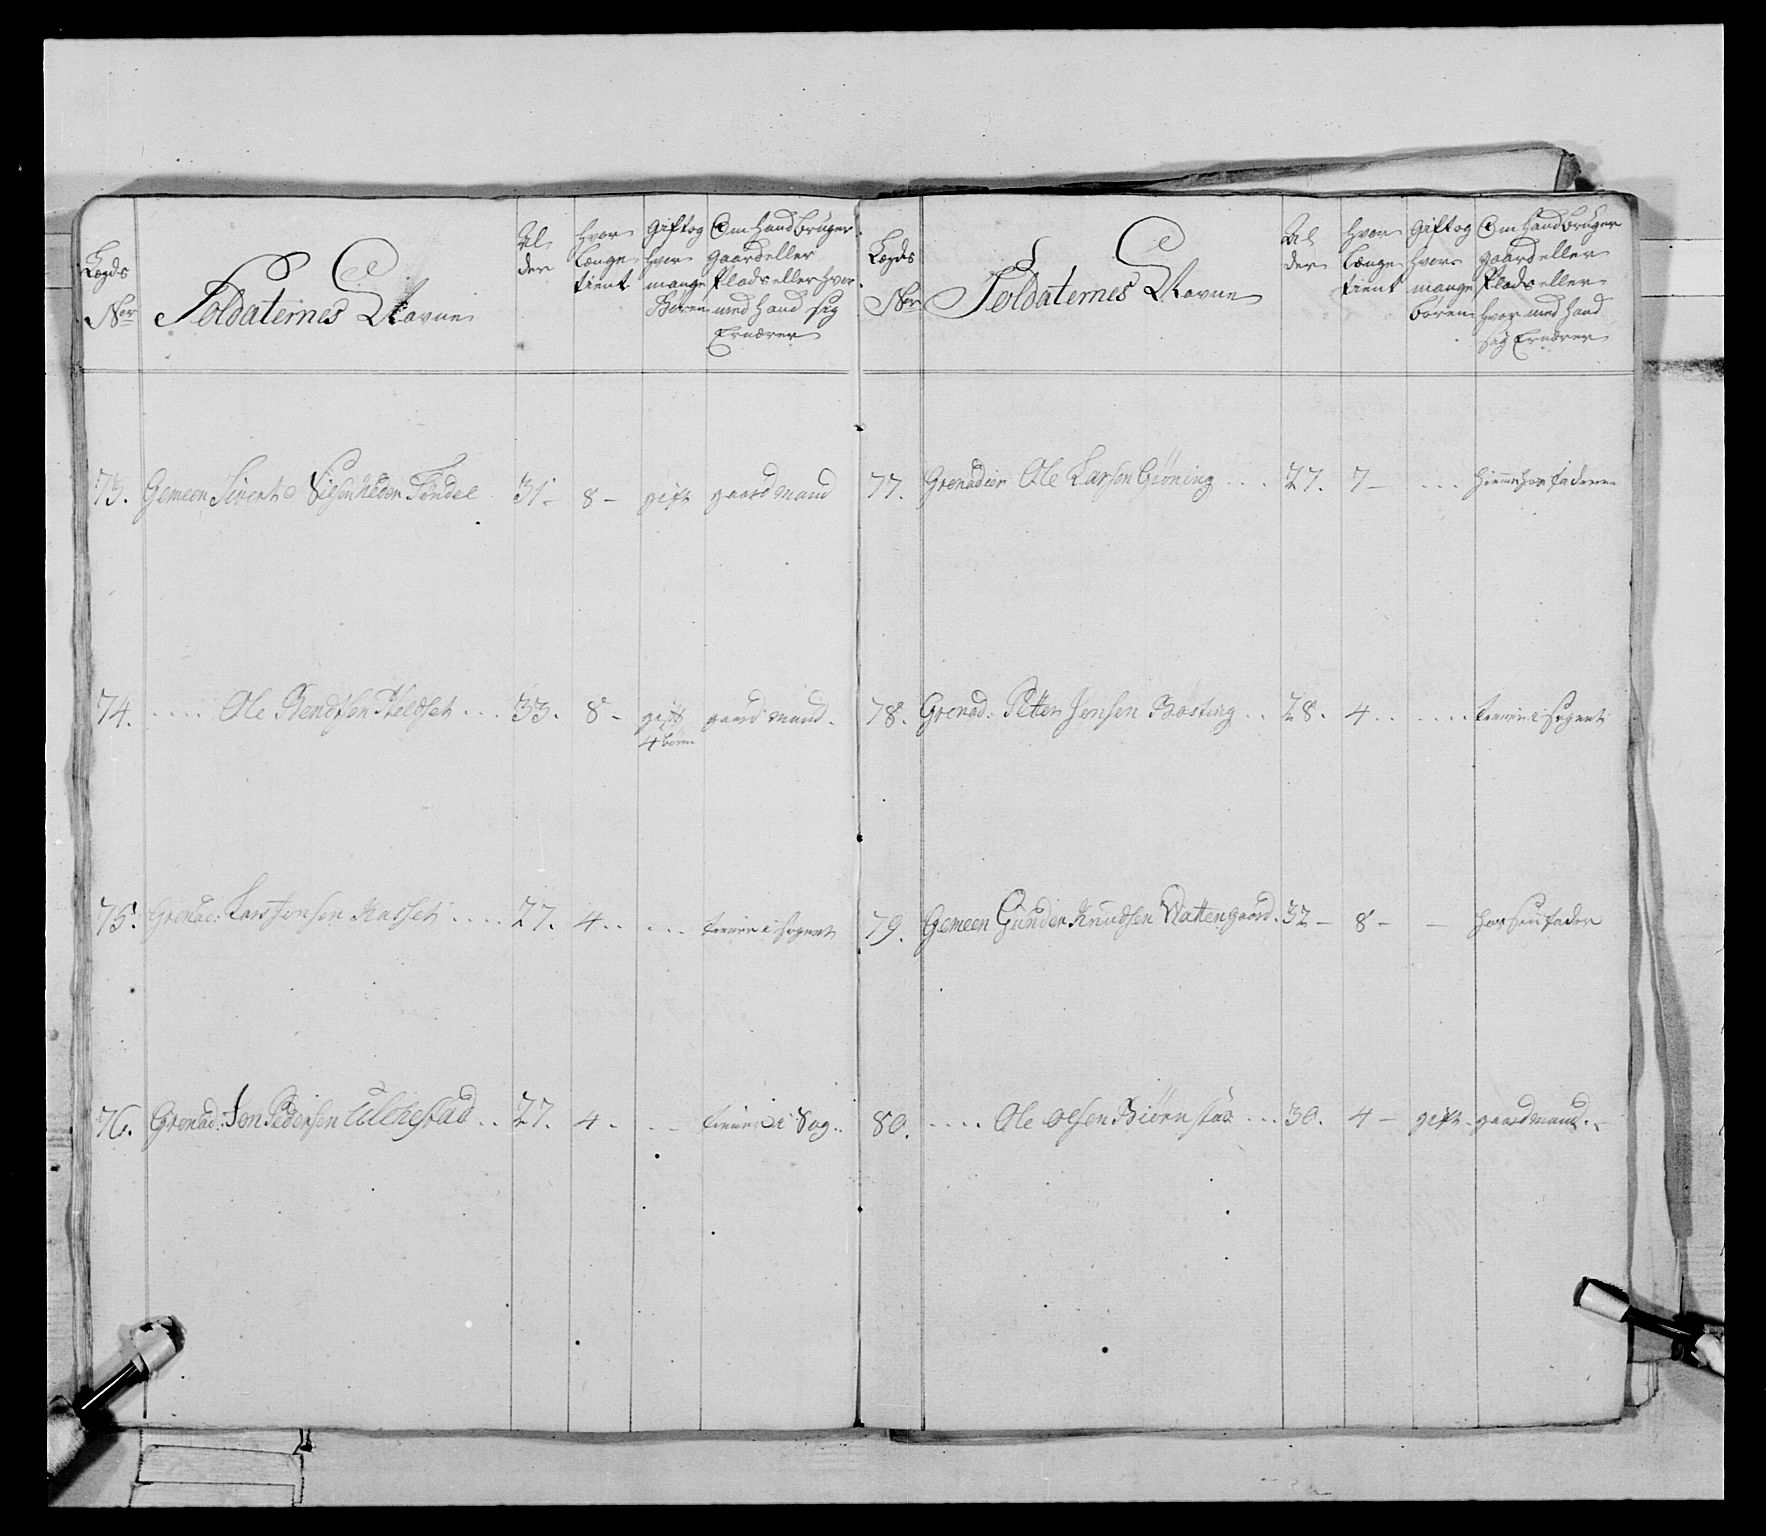 Lægds
Ner
Soldaternes Navne
Al
der
Hvor
Længe
tient
Gift og
hvor
mange
Børen
Om Hand bruger
gaard eller
Plads eller hvor
med hand sig
Ernærer
73. Gemeen Nilsen Tøndel 31 - 8 - gift gaard mand
74. ..... Ole Bendtsen ... 33. 8 - gift gaard mand.
4 børn
75. Grenad: Lars Jonsen Kasset .... 27. 4 .. ... tiener i sognet
76. Grenad: Jon Pedersen Ulchestad .. 27. 4 . . - tiener i Sog..
Lægds
Ner
Soldaternes Navne
Al
der
Hvor
Længe
tient
Gift og
hvor
mange
børen
Om Hand bruger
gaard eller
Plads eller
hvor med hand
sig Ernærer
77. Grenadeer Ole Larsen Grøning ... 27. 7 - .... hiemme hos faderen
78. Grenad: Petter Jensen Bøsting .. 28. 4 .. ..... tiener i sognet
79. Gemeen Gunder Knudsen Wattengaard. 32 - 8 - - hos sin fader
80. .... Ole Olsen Biørnstad ... 30. 4 - gift - gaard mand. -